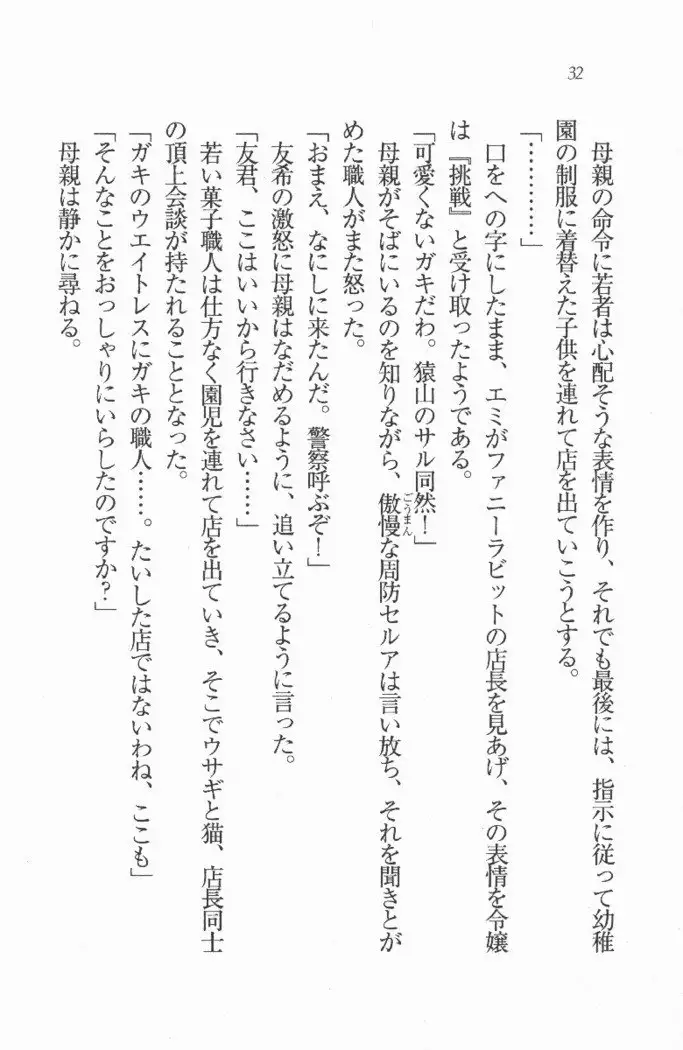 32
母親の命令に若者は心配そうな表情を作り、それでも最後には、指示に従って幼稚
園の制服に着替えた子供を連れて店を出ていこうとする。
「…………」
口をへの字にしたまま、エミがファニーラビットの店長を見あげ、その表情を令嬢
は『挑戦』と受け取ったようである。
「可愛くないガキだわ。猿山のサル同然！」
母親がそばにいるのを知りながら、傲慢な周防セルアは言い放ち、それを聞きとが
ごうまん
めた職人がまた怒った。
「おまえ、なにしに来たんだ。警察呼ぶぞ！」
友希の激怒に母親はなだめるように、追い立てるように言った。
「友君、ここはいいから行きなさい……」
若い菓子職人は仕方なく園児を連れて店を出ていき、そこでウサギと猫、店長同士
の頂上会談が持たれることとなった。
「ガキのウエイトレスにガキの職人……。たいした店ではないわね、ここも」
「そんなことをおっしゃりにいらしたのですか？」
母親は静かに尋ねる。